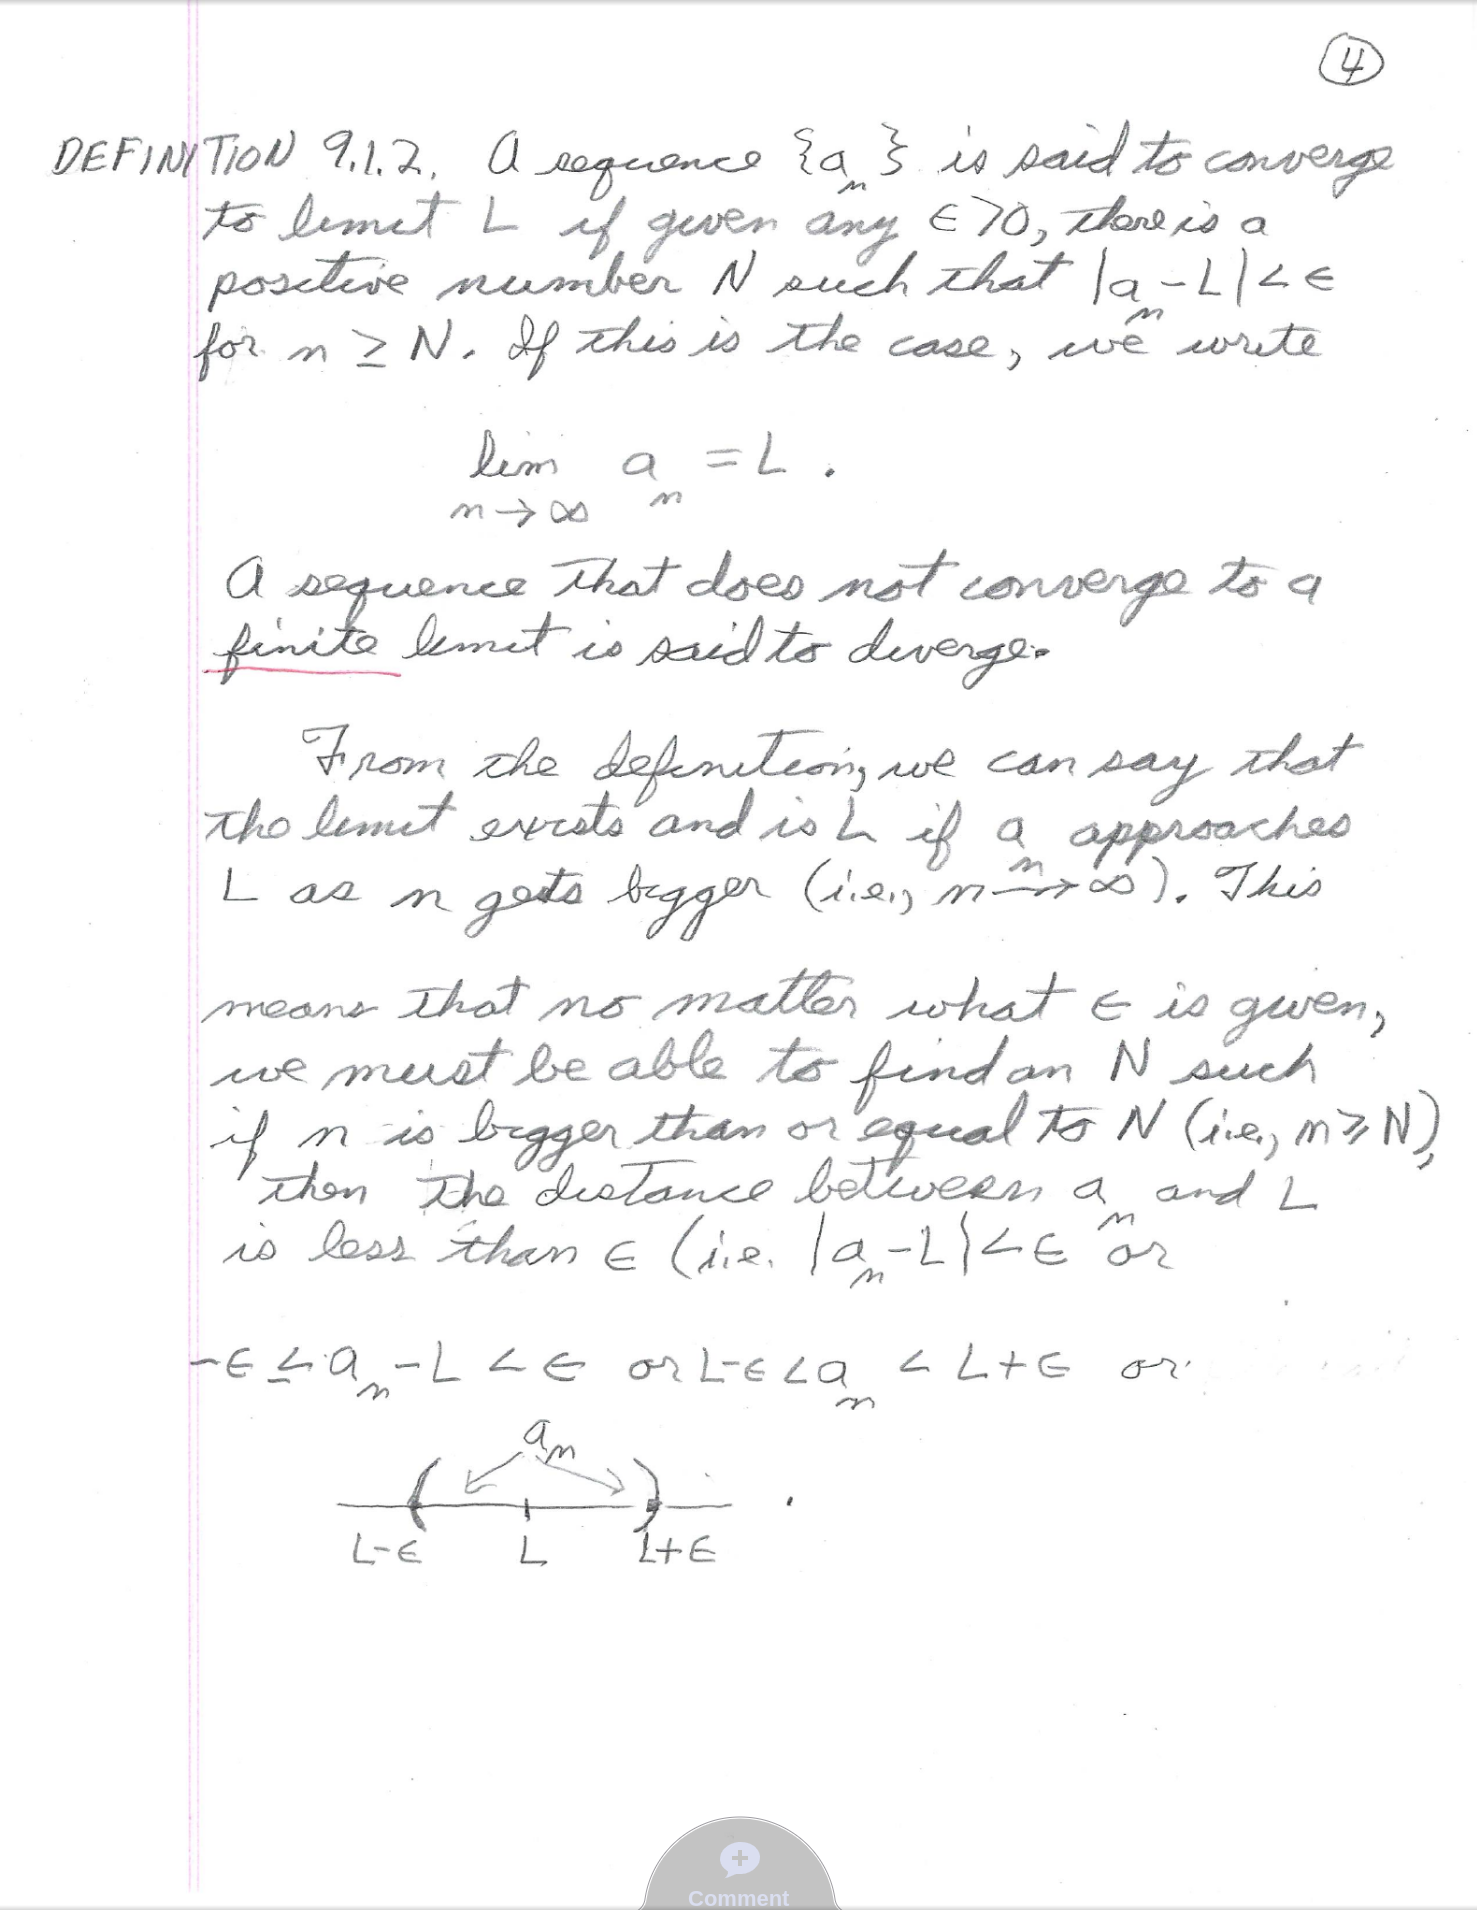 4
DEFINITION 9.1.2. A sequence {a_n} is said to converge
to limit L if given any ϵ>0, there is a
positive number N such that |a_n-L|<ϵ
for n ≥ N. If this is the case, we write
lim a_n = L.
n→∞
A sequence that does not converge to a
finite limit is said to diverge.
From the definition, we can say that
the limit exists and is L if a_n approaches
L as n gets bigger (i.e., n→∞). This
means that no matter what ϵ is given,
we must be able to find an N such
if n is bigger than or equal to N (i.e., n≥N),
then the distance between a_n and L
is less than ϵ (i.e. |a_n-L|<ϵ or
-ϵ ≤ a_n - L < ϵ or L-ϵ < a_n < L+ϵ or
a_n
( ) .
L-ϵ L L+ϵ
Comment